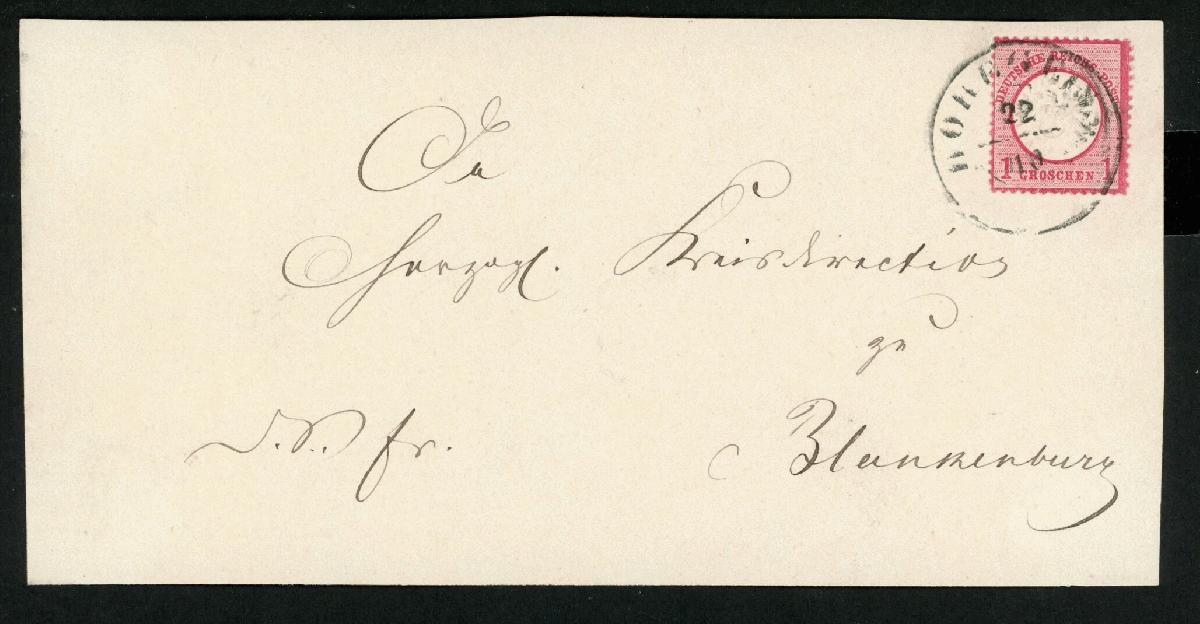 DEUTSCHE REICHS-POST
22
10
1 GROSCHEN 1
An
Herzogl. Kreisdirection
zu
D.S. fr. Blankenburg